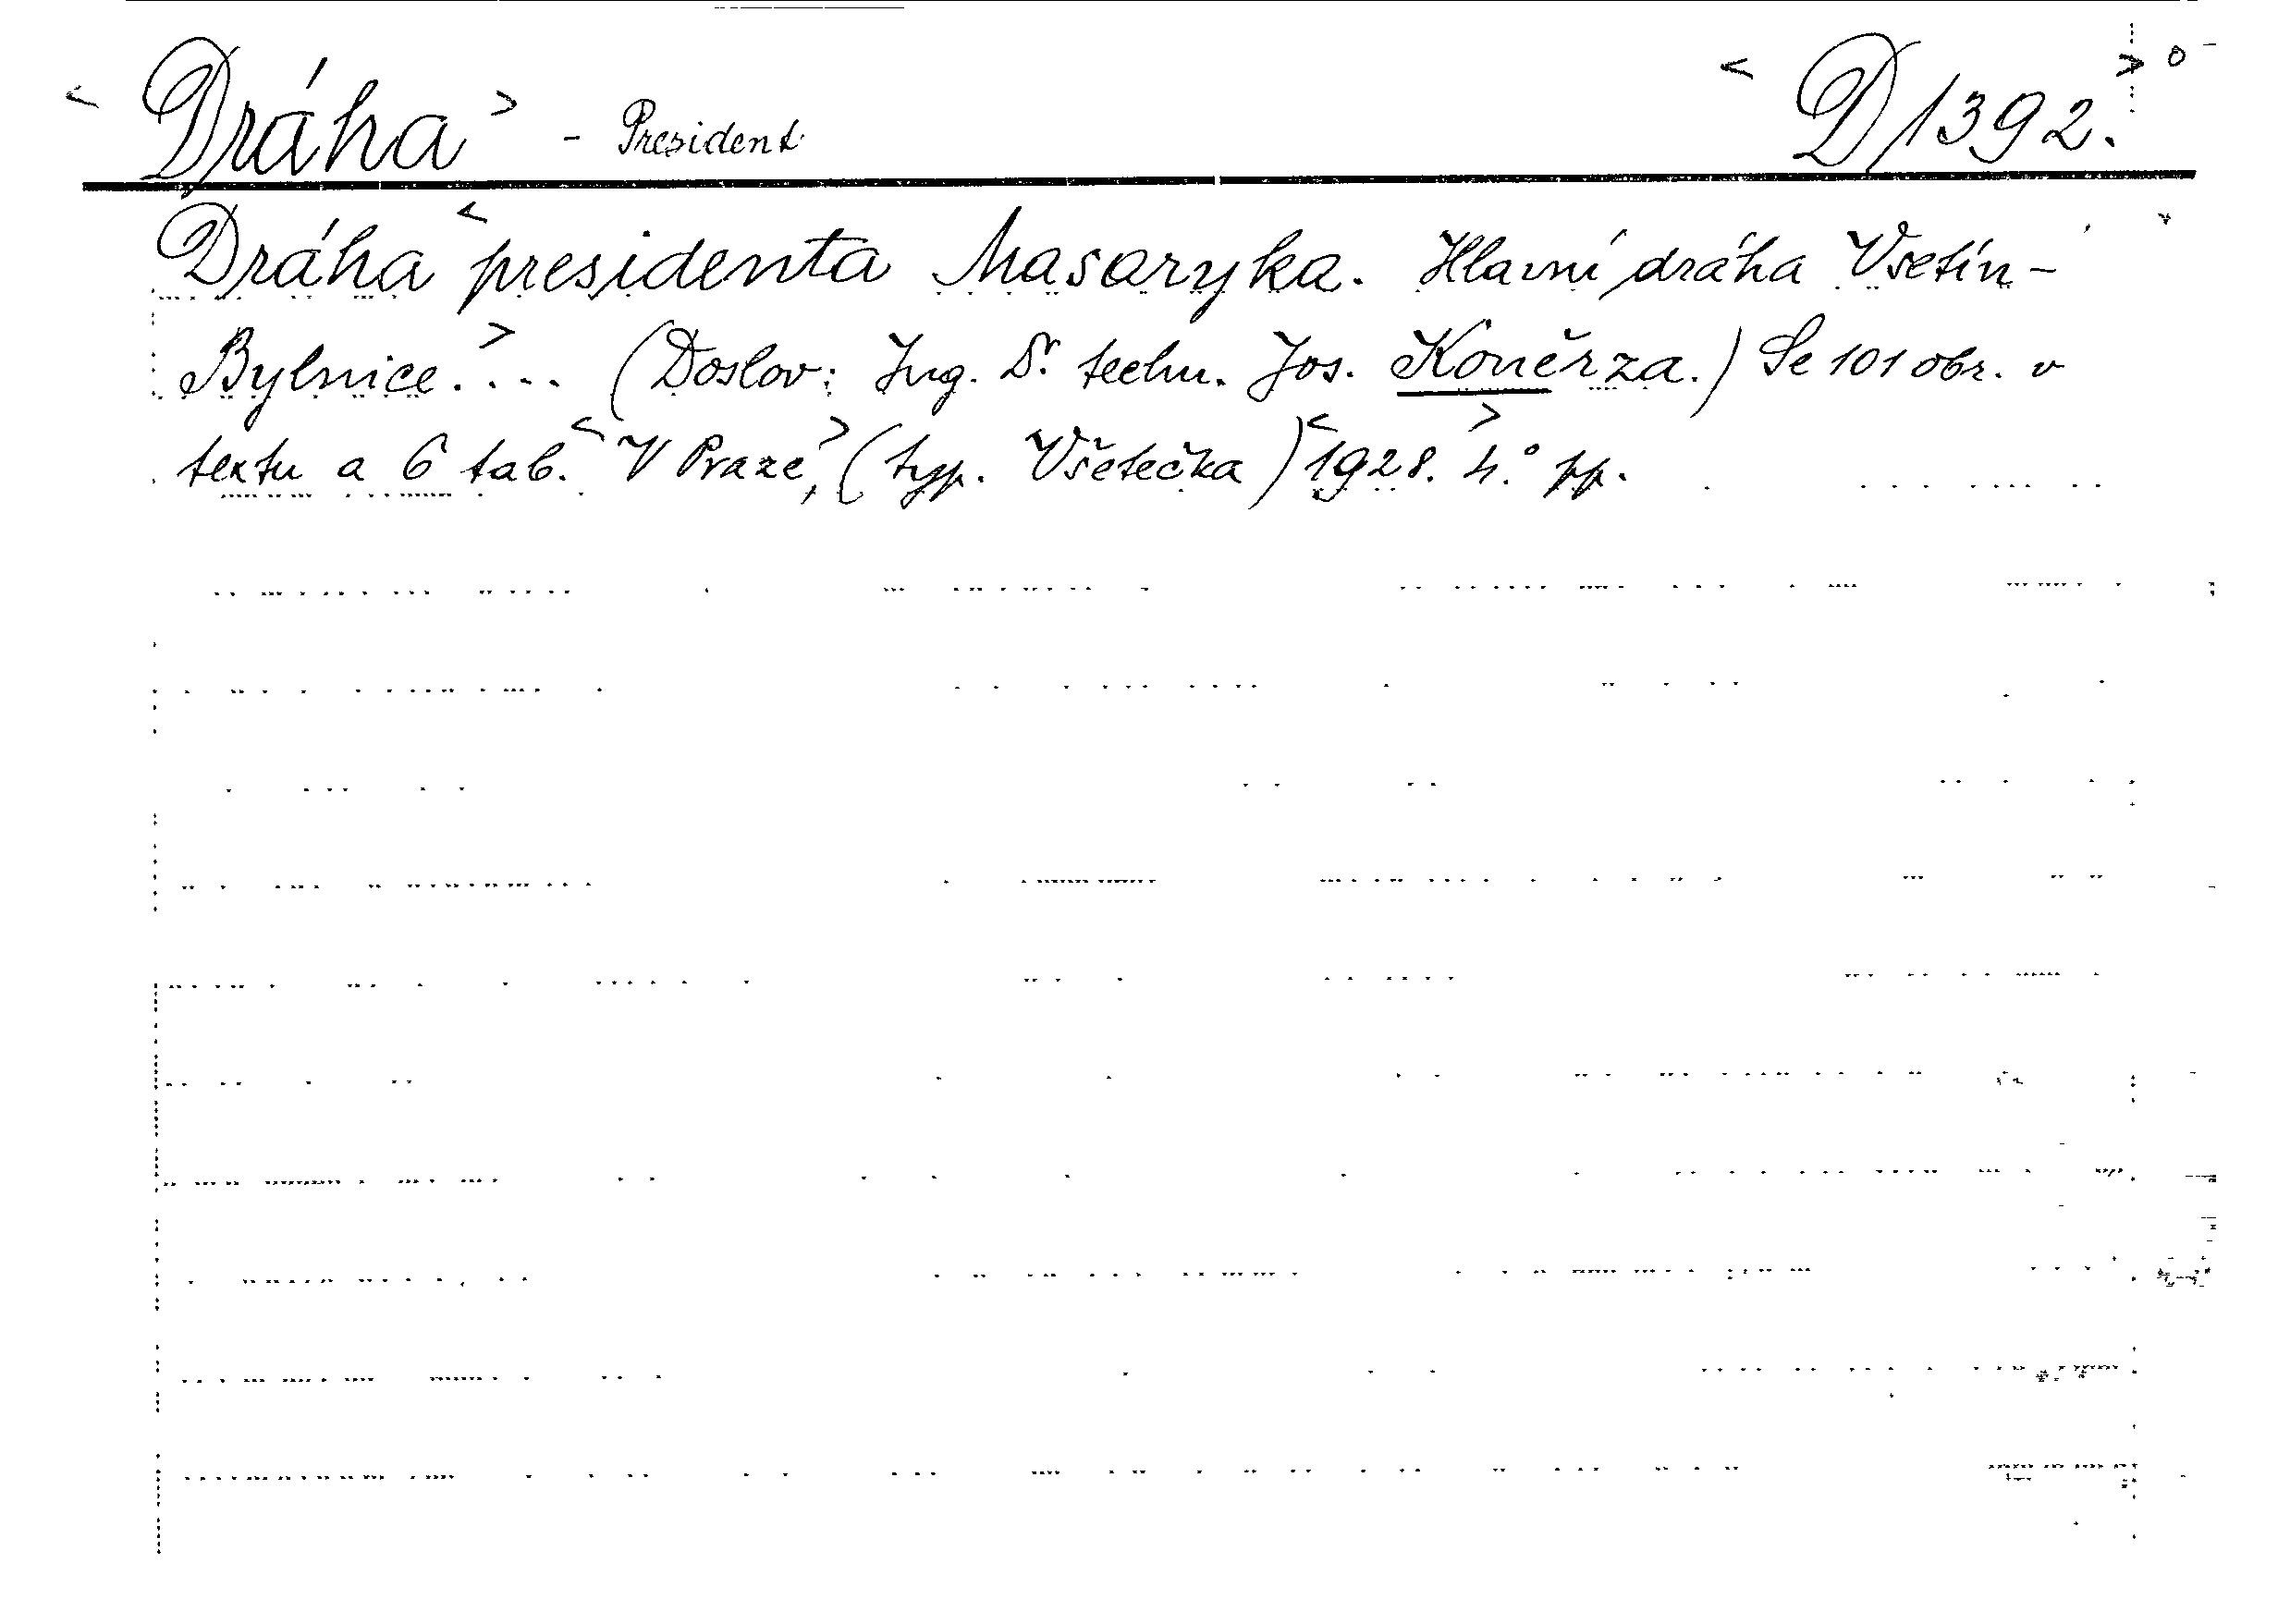 < Dráha > - President < D 1392. > o
Dráha < presidenta Masaryka. Hlavní dráha Vsetín -
Bylnice. > ... (Doslov: Ing. Dr. techn. Jos. Koněrza.) Se 101 obr. v
textu a 6 tab. < V Praze, > (typ. Všetečka) < 1928. > 4.° pp.